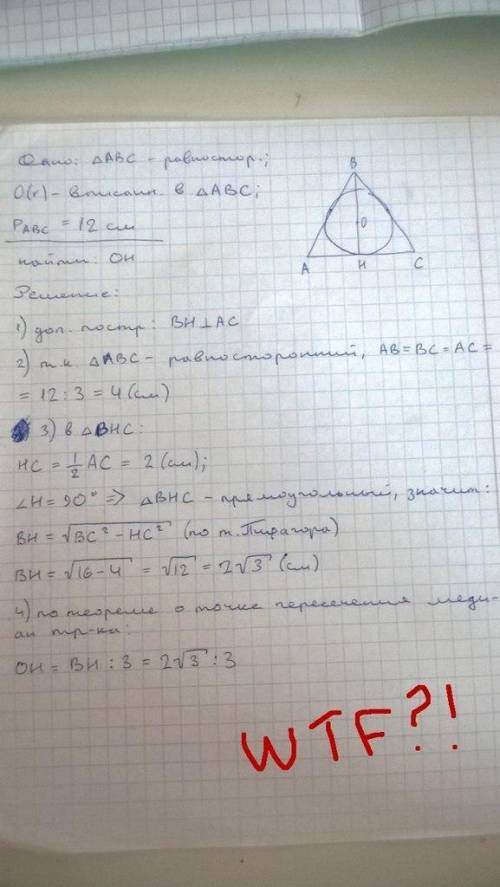 Дано: △ABC - равностор.;
O(r) - вписанн. в △ABC;
P_ABC = 12 см
найти: OH
Решение:
1) доп. постр: BH⊥AC
2) т.к. △ABC - равносторонний, AB = BC = AC =
= 12 : 3 = 4 (см)
3) в △BHC:
HC = 1/2 AC = 2 (см);
∠H = 90° => △BHC - прямоугольный, значит:
BH = √(BC² - HC²) (по т. Пифагора)
BH = √(16 - 4) = √12 = 2√3 (см)
4) по теореме о точке пересечения меди-
ан тр-ка:
OH = BH : 3 = 2√3 : 3
B
O
A H C
WTF?!